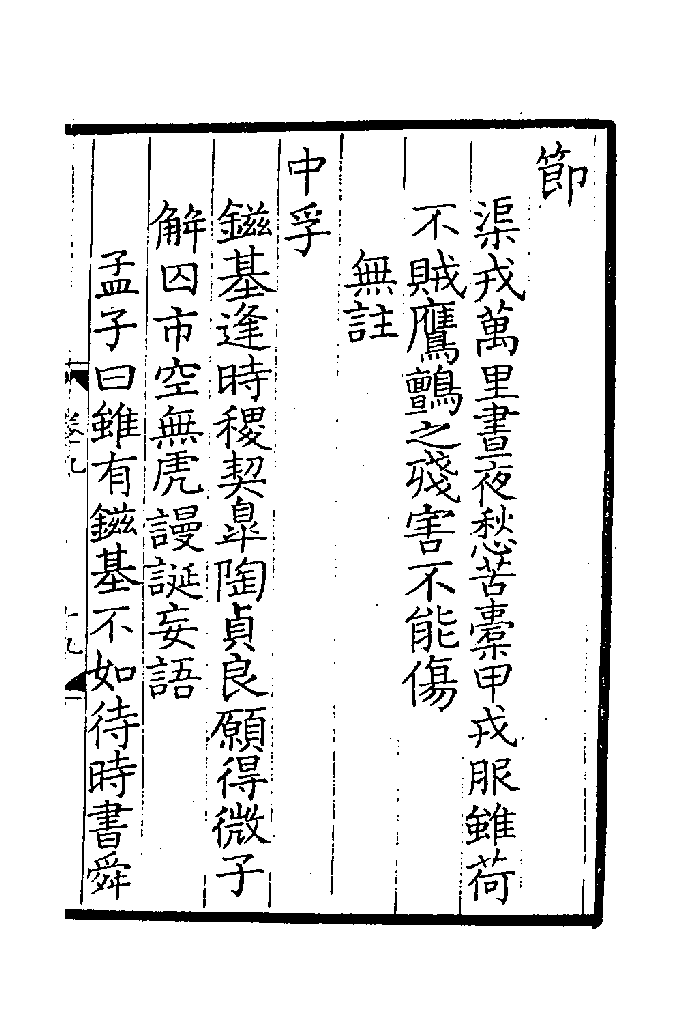 節
渠戎萬里晝夜愁苦櫜甲戎服雖荷
不賊鷹鸇之殘害不能傷
無註
中孚
鎡基逢時稷契皐陶貞良願得微子
解囚市空無虎謾誕妄語
孟子曰雖有鎡基不如待時書舜
卷十九